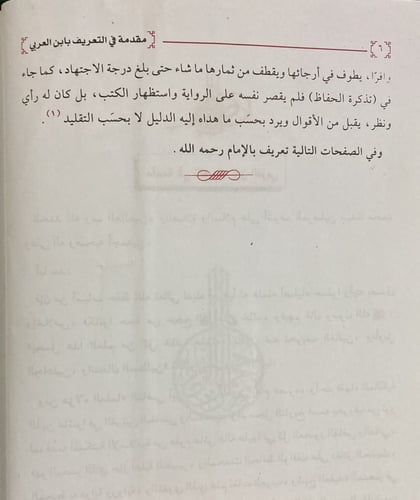 ٦ مقدمة في التعريف بابن العربي
وافرًا، يطوف في أرجائها ويقطف من ثمارها ما شاء حتى بلغ درجة الاجتهاد، كما جاء
في (تذكرة الحفاظ) فلم يقصر نفسه على الرواية واستظهار الكتب، بل كان له رأي
ونظر، يقبل من الأقوال ويرد بحسَب ما هداه إليه الدليل لا بحسَب التقليد (١).
وفي الصفحات التالية تعريف بالإمام رحمه الله .